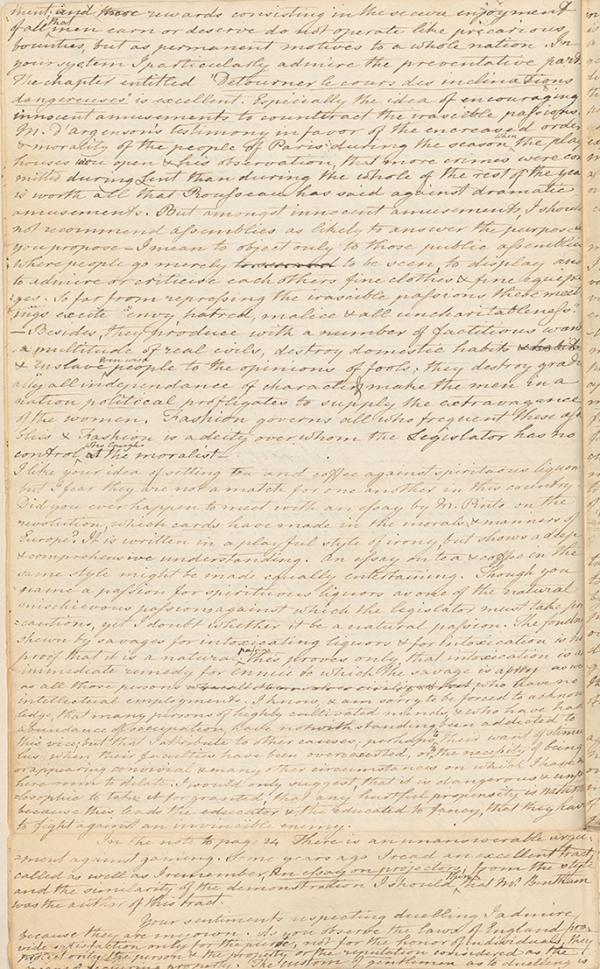 ment and those rewards consisting in the secure enjoyment
of all that men earn or deserve do not operate like precarious
bounties, but as permanent motives to a whole nation. In
your system I particularly admire the preventative part.
The chapter entitled "Détourner le cours des inclinations
dangereuses" is excellent. Especially the idea of encouraging
innocent amusements to counteract the irascible passions.
M. D'argenson's testimony in favor of the encreased order
& morality of the people of Paris during the season when the play
houses were open & his observation, that more crimes were com
mitted during Lent than during the whole of the rest of the year
is worth all that Rousseau has said against dramatic
amusements. But amongst innocent amusements, I should
not recommend assemblies as likely to answer the purpose
you propose – I mean to object only to those public assemblies
where people go merely to be seen, to display and
to admire or criticise each others fine clothes & fine equipa
ges. So far from repressing the irascible passions these meet
ings excite envy hatred, malice & all uncharitableness.
– Besides, they produce with a number of factitious wants
a multitude of real evils, destroy domestic habits
& enslave people to the opinions of fools; they destroy grad
ally all independance of character & make the men in a
nation political profligates to supply the extravagance
of the women. Fashion governs all who frequent these
& Fashion is a deity over whom the Legislator has no
control, the moralist –
I like your idea of setting tea and coffee against spirituous liquors
but I fear they are not a match for one another in this country.
Did you ever happen to meet with an essay by M. Pinto on the
revolution, which cards have made in the morals & manners of
Europe? It is written in a playful style of irony but shows a deep
& comprehensive understanding. An essay on tea & coffee in the
same style might be made equally entertaining. Though you
name a passion for spirituous liquors as one of the natural
mischievous passions against which the legislator must take pre
cautions, yet I doubt whether it be a natural passion. The fondness
shewn by savages for intoxicating liquors & for intoxication is no
proof that it is a natural passion this proves only, that intoxication is an
immediate remedy for ennui to which the savage is a prey as well
as all those persons who have no
intellectual employment. I know, & am sorry to be forced to acknow
ledge, that many persons of highly cultivated minds, & who have had
abundance of occupation, have notwithstanding been addicted to
this vice; but this I attribute to other causes, perhaps to their want of stimu
lus, when their faculties have been overexerted, or to the necessity of being
or appearing convivial & many other circumstances on which I have not
here room to dilate. I would only suggest, that it is dangerous &
to take it for granted, that any hurtful propensity is natural
because this leads the educator & the educated to fancy, that they have
to fight against an invincible enemy.
In the note to page 24 There is an unanswerable argu-
ment against gaming. Some years ago I read an excellent tract
called as well as I remember, An essay on projectors; from the style
and the similarity of the demonstration I should think that Mr. Bentham
was the author of this tract.
Your sentiments respecting duelling I admire
because they are my own. As you observe the laws of England pro-
vide satisfaction only for the purse, not for the honor of individuals; they
protect only the person & the property or the reputation considered as the
means of acquiring property. The custom of gentlemen as to duelling is